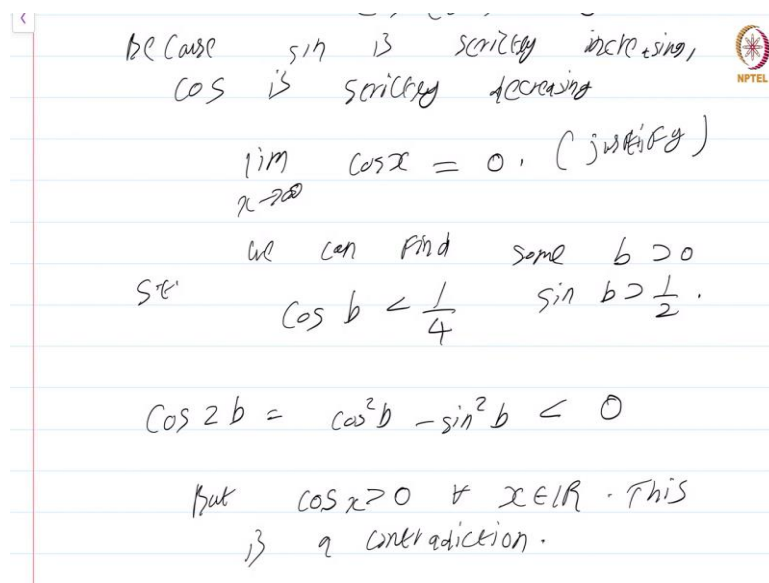 Because sin is strictly increasing,
NPTEL
cos is strictly decreasing
lim cos x = 0. (justify)
x→∞
we can find some b > 0
st. cos b < 1/4 sin b > 1/2.
cos 2b = cos²b − sin²b < 0
But cos x > 0 ∀ x ∈ ℝ. This
is a contradiction.